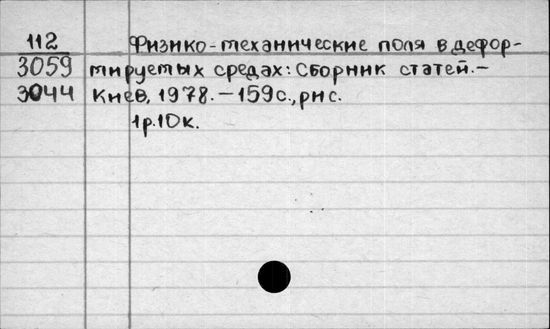 112 Физико-механические поля в дефор-
3059 мируемых средах: Сборник статей.-
3044 Киев, 1978. - 159с., рис.
1р.10к.